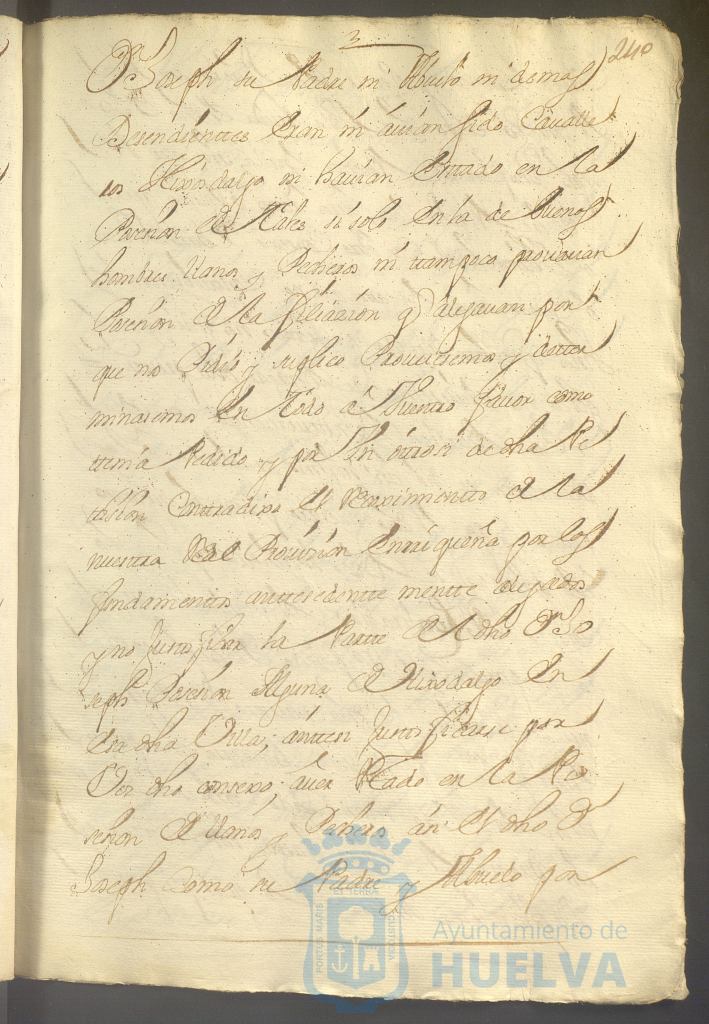 3
240
Dn Joseph su Padre ni Abuelo ni demas
Desendientes Eran ni avian sido Cavalle
ros Hixosdalgo ni havian Estado en la
Posesion de tales si solo En la de buenos
hombres llanos y Pecheros ni tampoco provavan
Posesion de la filiazion q alegavan por
que nos Pidio y suplico Proveiesemos y deter
minasemos En todo a favor como
tenia Pedido y por Un otrosi de dha Pe
tision Contradixo el de la
nuestra Real Provision Enrriqueña por los
fundamentos antesedente mente alegados
y no Justificar la Parte del dho Dn Jo
seph Posesion Alguna de Hixodalgo En
Esa dha Villa; antes Justificarse por
Ese dho consexo, aver Estado en la Po
sesion de llanos y Pecheros asi el dho Dn
Joseph Como su Padre y Abuelo por
PORTUS MARIS
ET TERRAE
CUSTODIA
Ayuntamiento de
HUELVA